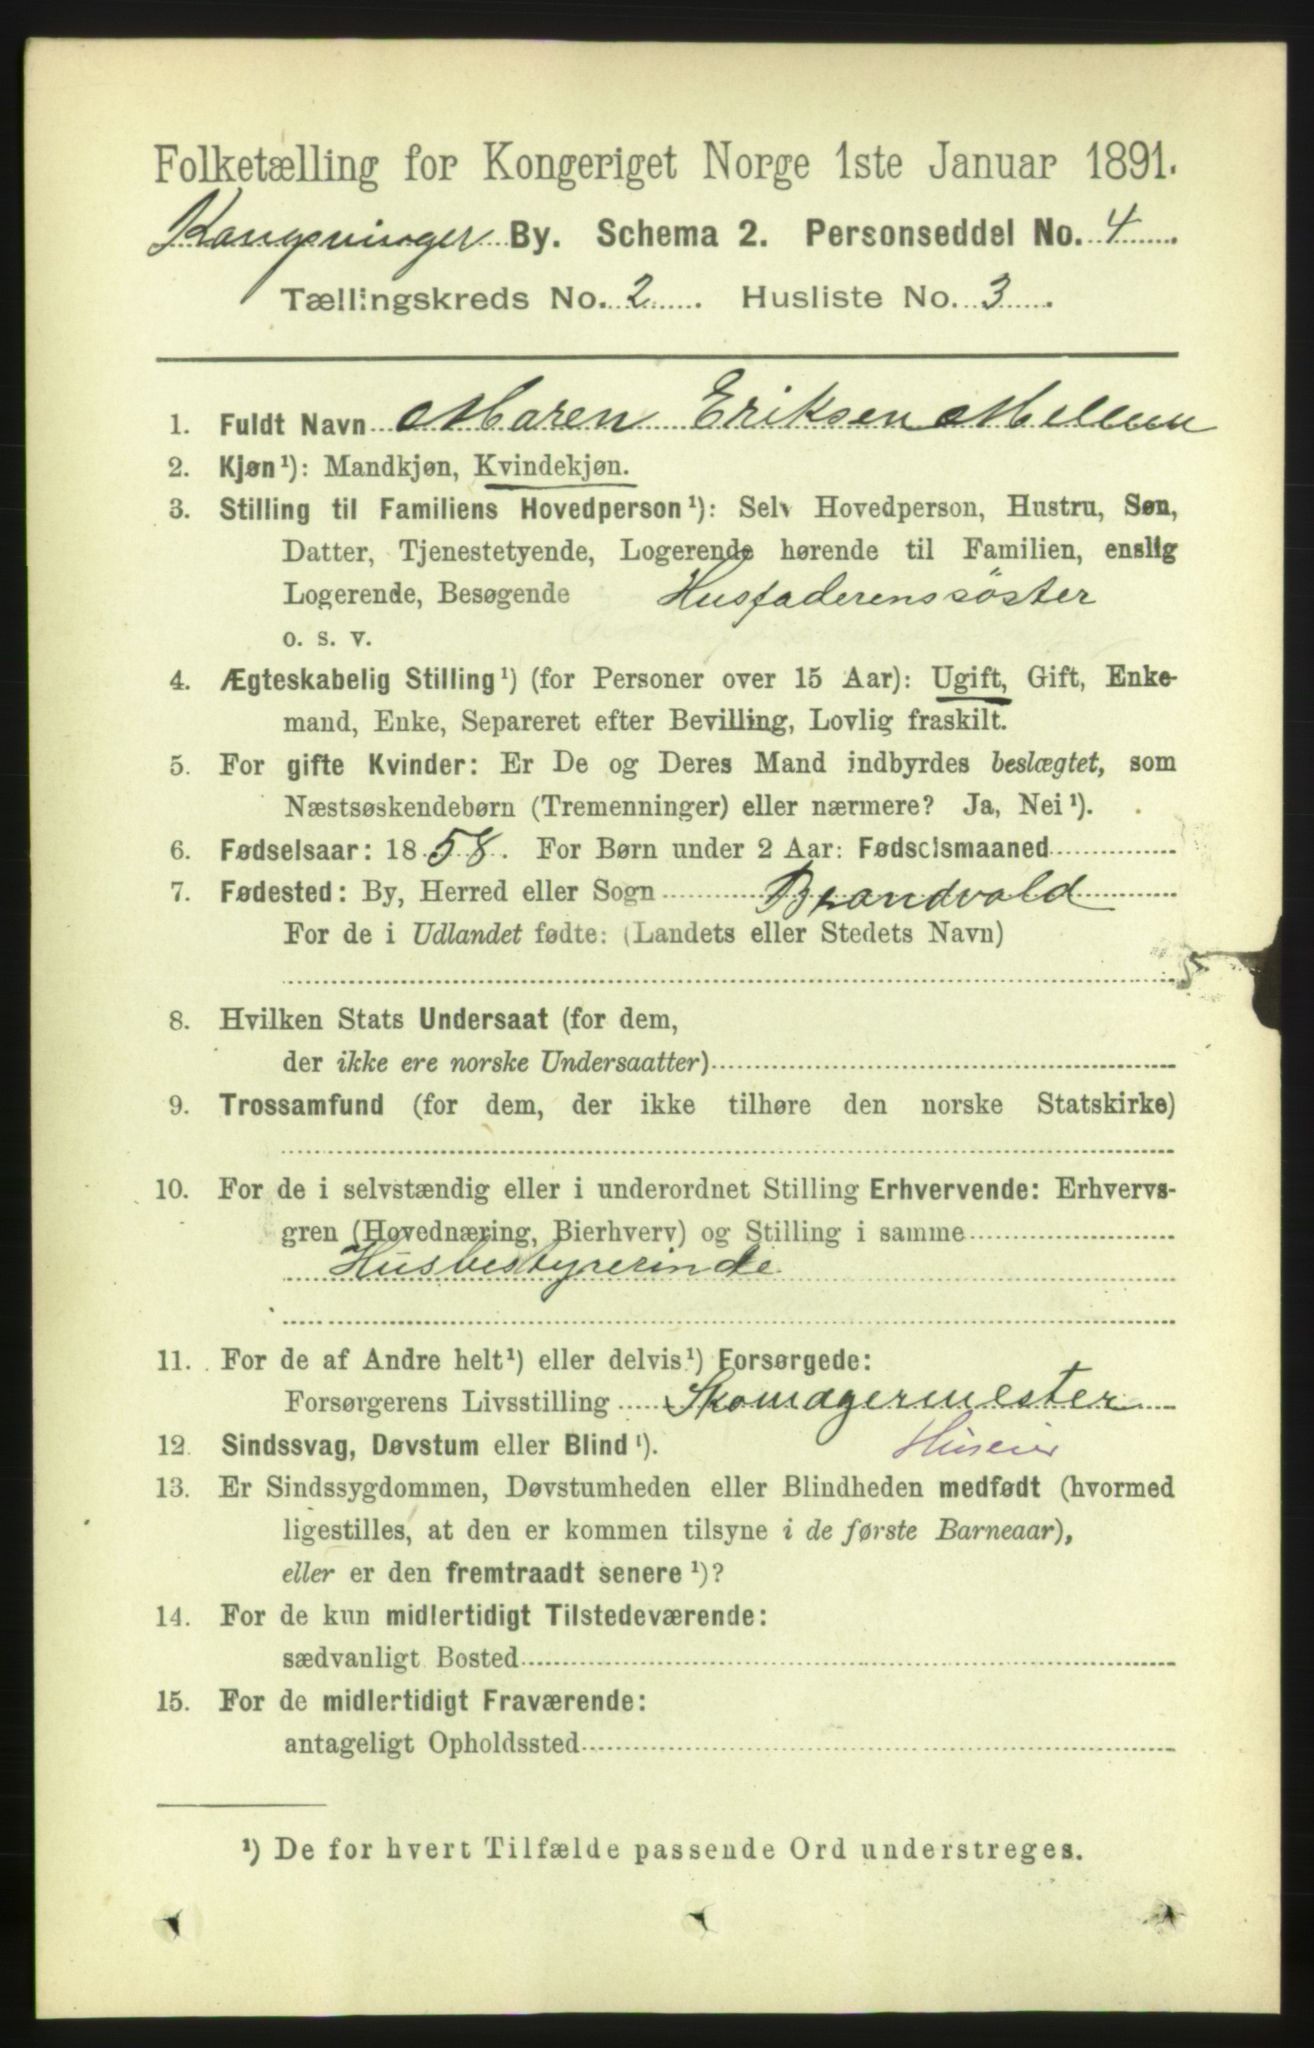 Folketælling for Kongeriget Norge 1ste Januar 1891.
Kongsvinger By. Schema 2. Personseddel No. 4
Tællingskreds No. 2. Husliste No. 3.
1. Fuldt Navn Maren Eriksen Mellum
2. Kjøn¹): Mandkjøn, Kvindekjøn.
3. Stilling til Familiens Hovedperson¹): Selv Hovedperson, Hustru, Søn,
Datter, Tjenestetyende, Logerende hørende til Familien, enslig
Logerende, Besøgende Husfaderens søster
o. s. v.
4. Ægteskabelig Stilling¹) (for Personer over 15 Aar): Ugift, Gift, Enke-
mand, Enke, Separeret efter Bevilling, Lovlig fraskilt.
5. For gifte Kvinder: Er De og Deres Mand indbyrdes beslægtet, som
Næstsøskendebørn (Tremenninger) eller nærmere? Ja, Nei¹).
6. Fødselsaar: 1858. For Børn under 2 Aar: Fødselsmaaned
7. Fødested: By, Herred eller Sogn Brandvold
For de i Udlandet fødte: (Landets eller Stedets Navn)
8. Hvilken Stats Undersaat (for dem,
der ikke ere norske Undersaatter)
9. Trossamfund (for dem, der ikke tilhøre den norske Statskirke)
10. For de i selvstændig eller i underordnet Stilling Erhvervende: Erhvervs-
gren (Hovednæring, Bierhverv) og Stilling i samme
Husbestyrerinde
11. For de af Andre helt¹) eller delvis¹) Forsørgede:
Forsørgerens Livsstilling Skomagermester
12. Sindssvag, Døvstum eller Blind¹). Huseier
13. Er Sindssygdommen, Døvstumheden eller Blindheden medfødt (hvormed
ligestilles, at den er kommen tilsyne i de første Barneaar),
eller er den fremtraadt senere¹)?
14. For de kun midlertidigt Tilstedeværende:
sædvanligt Bosted
15. For de midlertidigt Fraværende:
antageligt Opholdssted
¹) De for hvert Tilfælde passende Ord understreges.